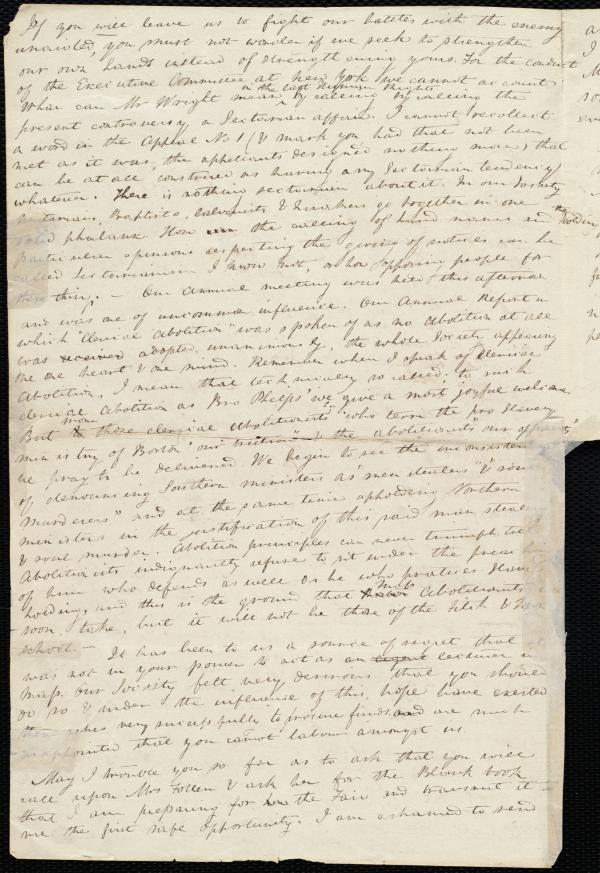 If you will leave us to fight our battles with the enemy
unaided, you must not wonder if we seek to strengthen
our own hands instead of strengthening yours. For the conduct
of the Executive Committee at New York we cannot account
What can Mr Wright mean in the last Human Rights by calling the
present controversy a Sectarian affair. I cannot recollect
a word in the Appeal No 1 (& mark you had that not been
met as it was, the appellants designed nothing more) that
can be at all construed as having any Sectarian tendency
whatever. There is nothing sectarian about it. In our Society
Unitarians, Baptists, Calvinists & Quakers go together in one
solid phalanx. How the calling of hard names and holding
particular opinions respecting the giving of notices can be
called Sectarianism I know not, or how opposing people for
these things; – Our annual meeting was held this afternoon
and was one of uncommon influence. Our Annual Report in
which "Clerical Abolition" was spoken of as no Abolition at all
was received adopted unanimously, the whole Society appearing
one heart & one mind. Remember when I speak of Clerical
Abolition, I mean that technically so called; to such
clerical Abolition as Bro Phelps' we give a most joyful welcome
But from those clerical abolitionists "who term the pro Slavery
ministry of Boston "our brethren" & the abolitionists our opponents"
we pray to be delivered. We begin to see the inconsistency
of denouncing Southern ministers as "men stealers" & "soul
murderers" and at the same time upholding Northern
ministers in the justification of this said man stealing
& soul murder. Abolition principles can never triumph till
Abolitionists indignantly refuse to sit under the preaching
of him who defends as well as he who practises Slave
holding, and this is the ground that Mass Abolitionists will
soon take, but it will not be those of the Fitch &
school –
It has been to us a source of regret that it
was not in your power to act as an agent lecturer in
Mass. Our Society felt very desirous that you should
do so & under the influence of this hope have exerted
themselves very successfully to procure funds and are much
disappointed that you cannot labour amongst us
May I trouble you so far as to ask that you will
call upon Mrs Follen & ask her for the Blank book
that I am preparing for the Fair and transmit it to
me the first safe opportunity. I am ashamed to send